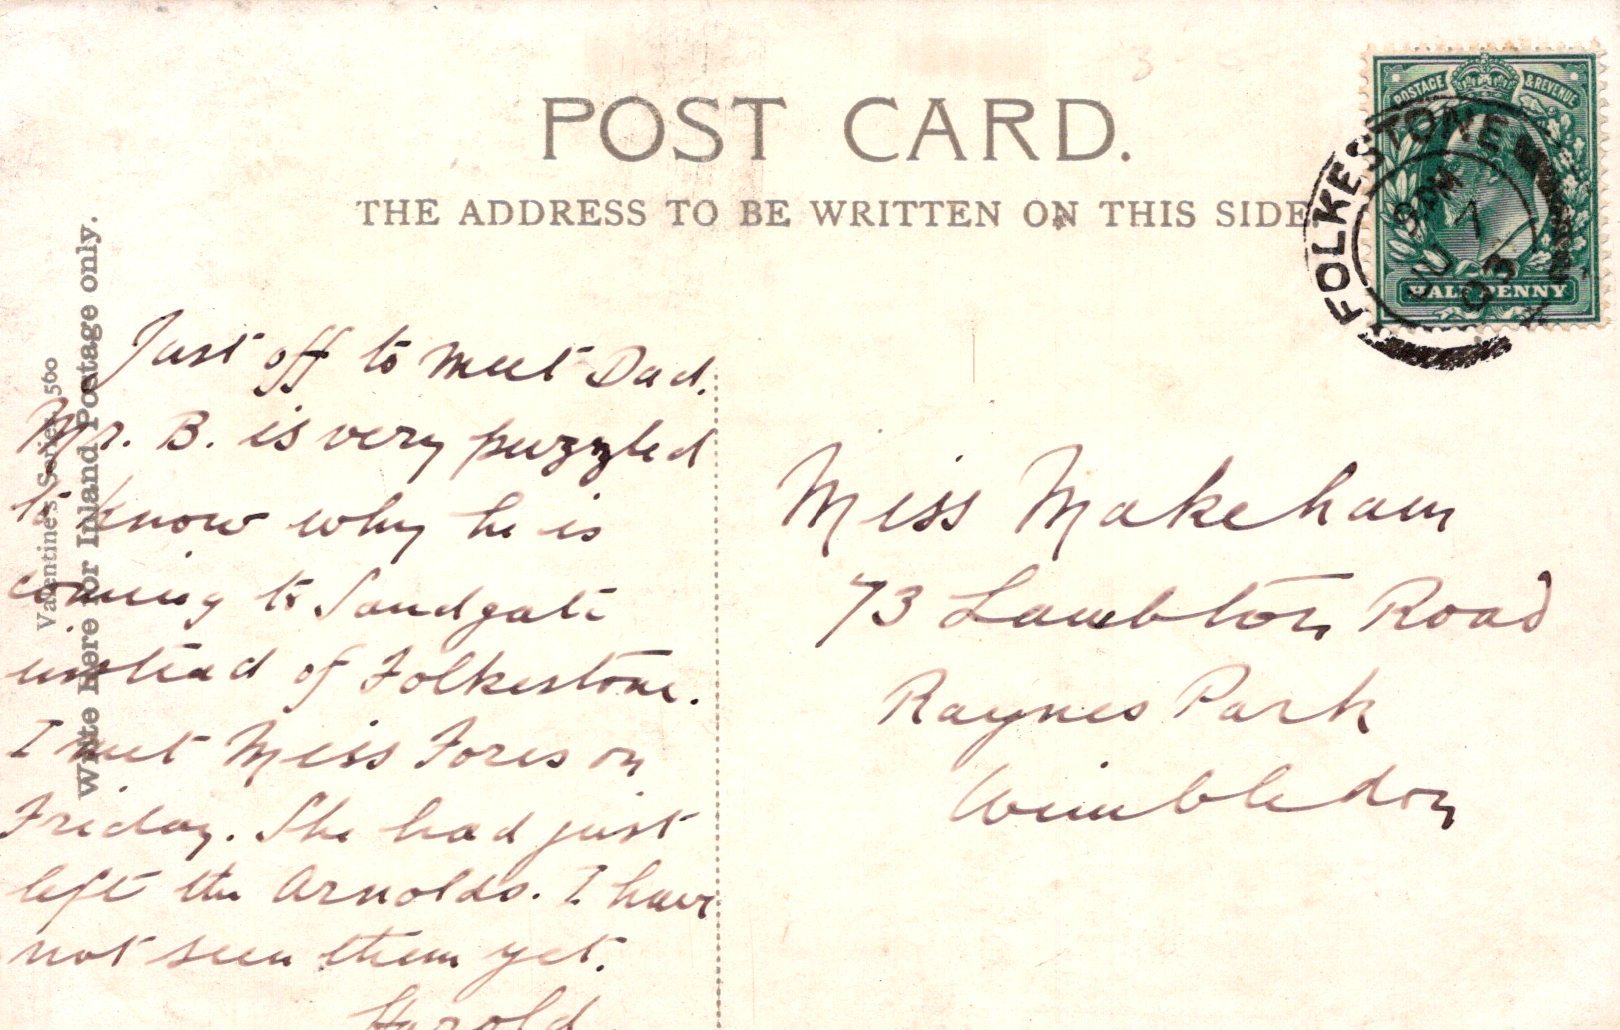 POST CARD.
THE ADDRESS TO BE WRITTEN ON THIS SIDE
POSTAGE & REVENUE
HALF PENNY
FOLKESTONE
9 AM
7
03
Valentine's Series 560
Write Here for Inland Postage only.
Just off to meet Dad.
Mr. B. is very puzzled
to know why he is
coming to Sandgate
instead of Folkestone.
I met Miss Fores on
Friday. She had just
left the Arnolds. I have
not seen them yet.
Harold
Miss Makeham
73 Lambton Road
Raynes Park
Wimbledon